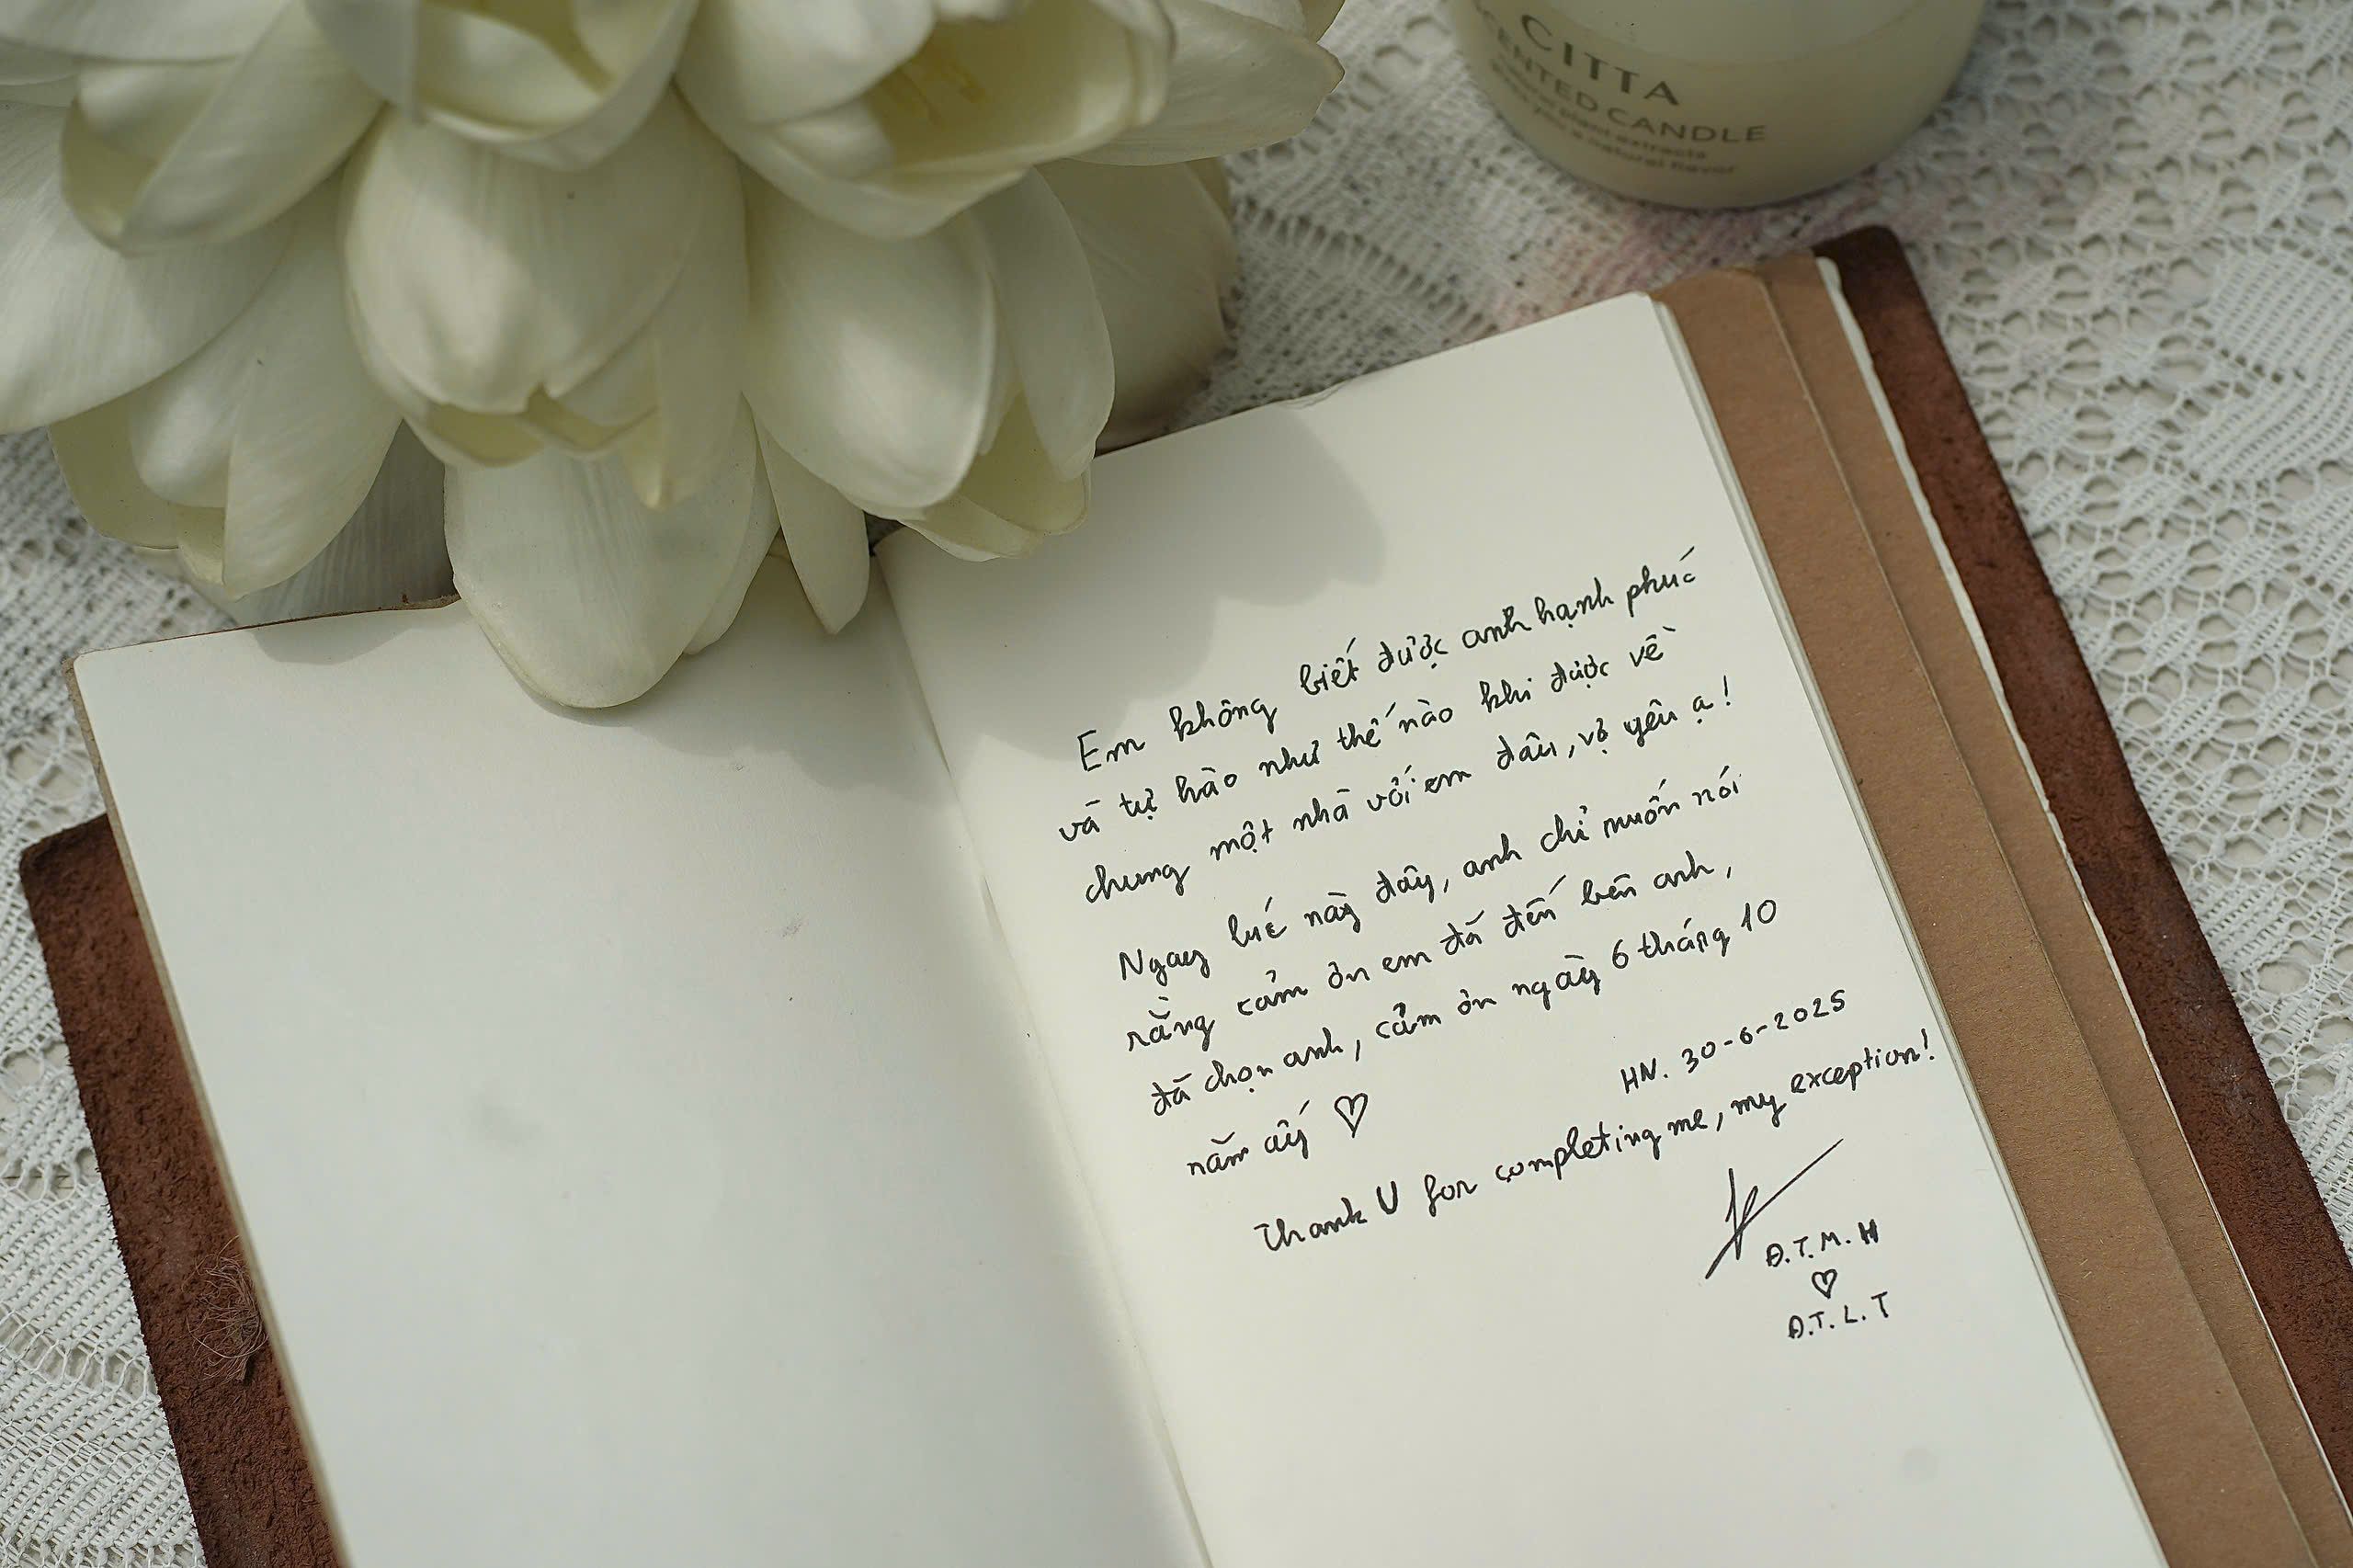 CITTA
SCENTED CANDLE
natural plant extracts
you a natural flavor
Em không biết được anh hạnh phúc
và tự hào như thế nào khi được về
chung một nhà với em đâu, vợ yêu ạ!
Ngay lúc này đây, anh chỉ muốn nói
rằng cảm ơn em đã đến bên anh,
đã chọn anh, cảm ơn ngày 6 tháng 10
năm ấy ♡
HN. 30-6-2025
Thank U for completing me, my exception!
Đ.T.M.H
♡
Đ.T.L.T